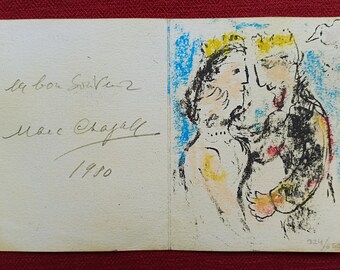 en bon Souvenir
Marc Chagall
1980